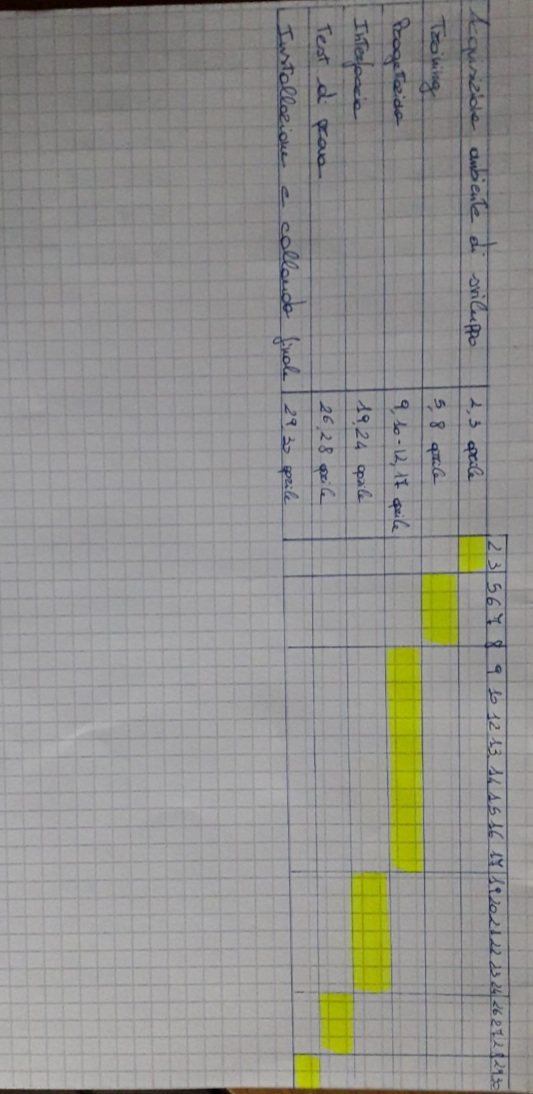 2 3 5 6 7 8 9 10 12 13 14 15 16 17 19 20 21 22 23 24 26 27 28 29 30
Acquisizione ambiente di sviluppo 2, 3 aprile
Training 5, 8 aprile
Progettazione 9, 10 - 12, 17 aprile
Interfaccia 19, 24 aprile
Test di prova 26, 28 aprile
Installazione e collaudo finale 29, 30 aprile